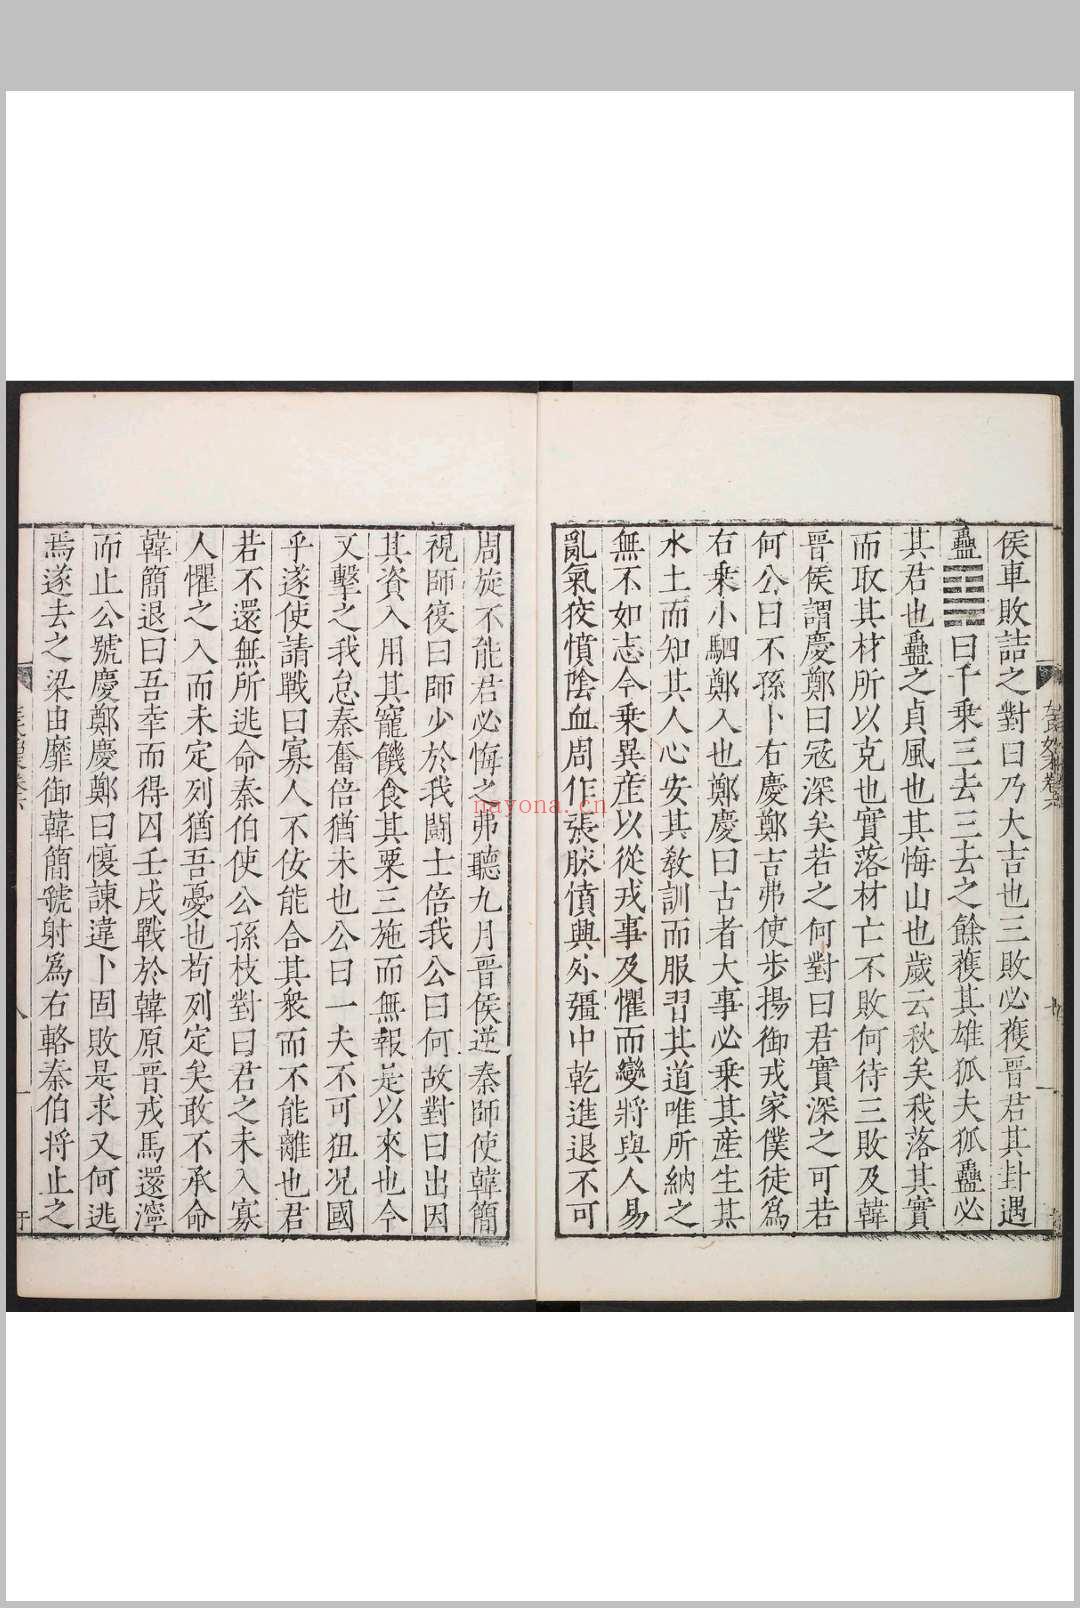 侯車敗詰之對曰乃大吉也三敗必獲晉君其卦遇
蠱䷑曰千乘三去三去之餘獲其雄狐夫狐蠱必
其君也蠱之貞風也其悔山也歲云秋矣我落其實
而取其材所以克也實落材亡不敗何待三敗及韓
晉侯謂慶鄭曰寇深矣若之何對曰君實深之可若
何公曰不孫卜右慶鄭吉弗使步揚御戎家僕徒爲
右乗小駟鄭入也鄭慶曰古者大事必乗其産生其
水土而知其人心安其教訓而服習其道唯所納之
無不如志今乗異産以從戎事及懼而變將與人易
亂氣狡憤陰血周作張脉僨興外彊中乾進退不可
周旋不能君必悔之弗聽九月晉侯逆秦師使韓簡
視師復曰師少於我鬬士倍我公曰何故對曰出因
其資入用其寵饑食其粟三施而無報是以來也今
又擊之我怠秦奮倍猶未也公曰一夫不可狃况國
乎遂使請戰曰寡人不佞能合其衆而不能離也君
若不還無所逃命秦伯使公孫枝對曰君之未入寡
人懼之入而未定列猶吾憂也茍列定矣敢不承命
韓簡退曰吾幸而得囚壬戌戰於韓原晉戎馬還濘
而止公號慶鄭慶鄭曰愎諫違卜固敗是求又何逃
焉遂去之梁由靡御韓簡虢射爲右輅秦伯将止之
nayona.cn